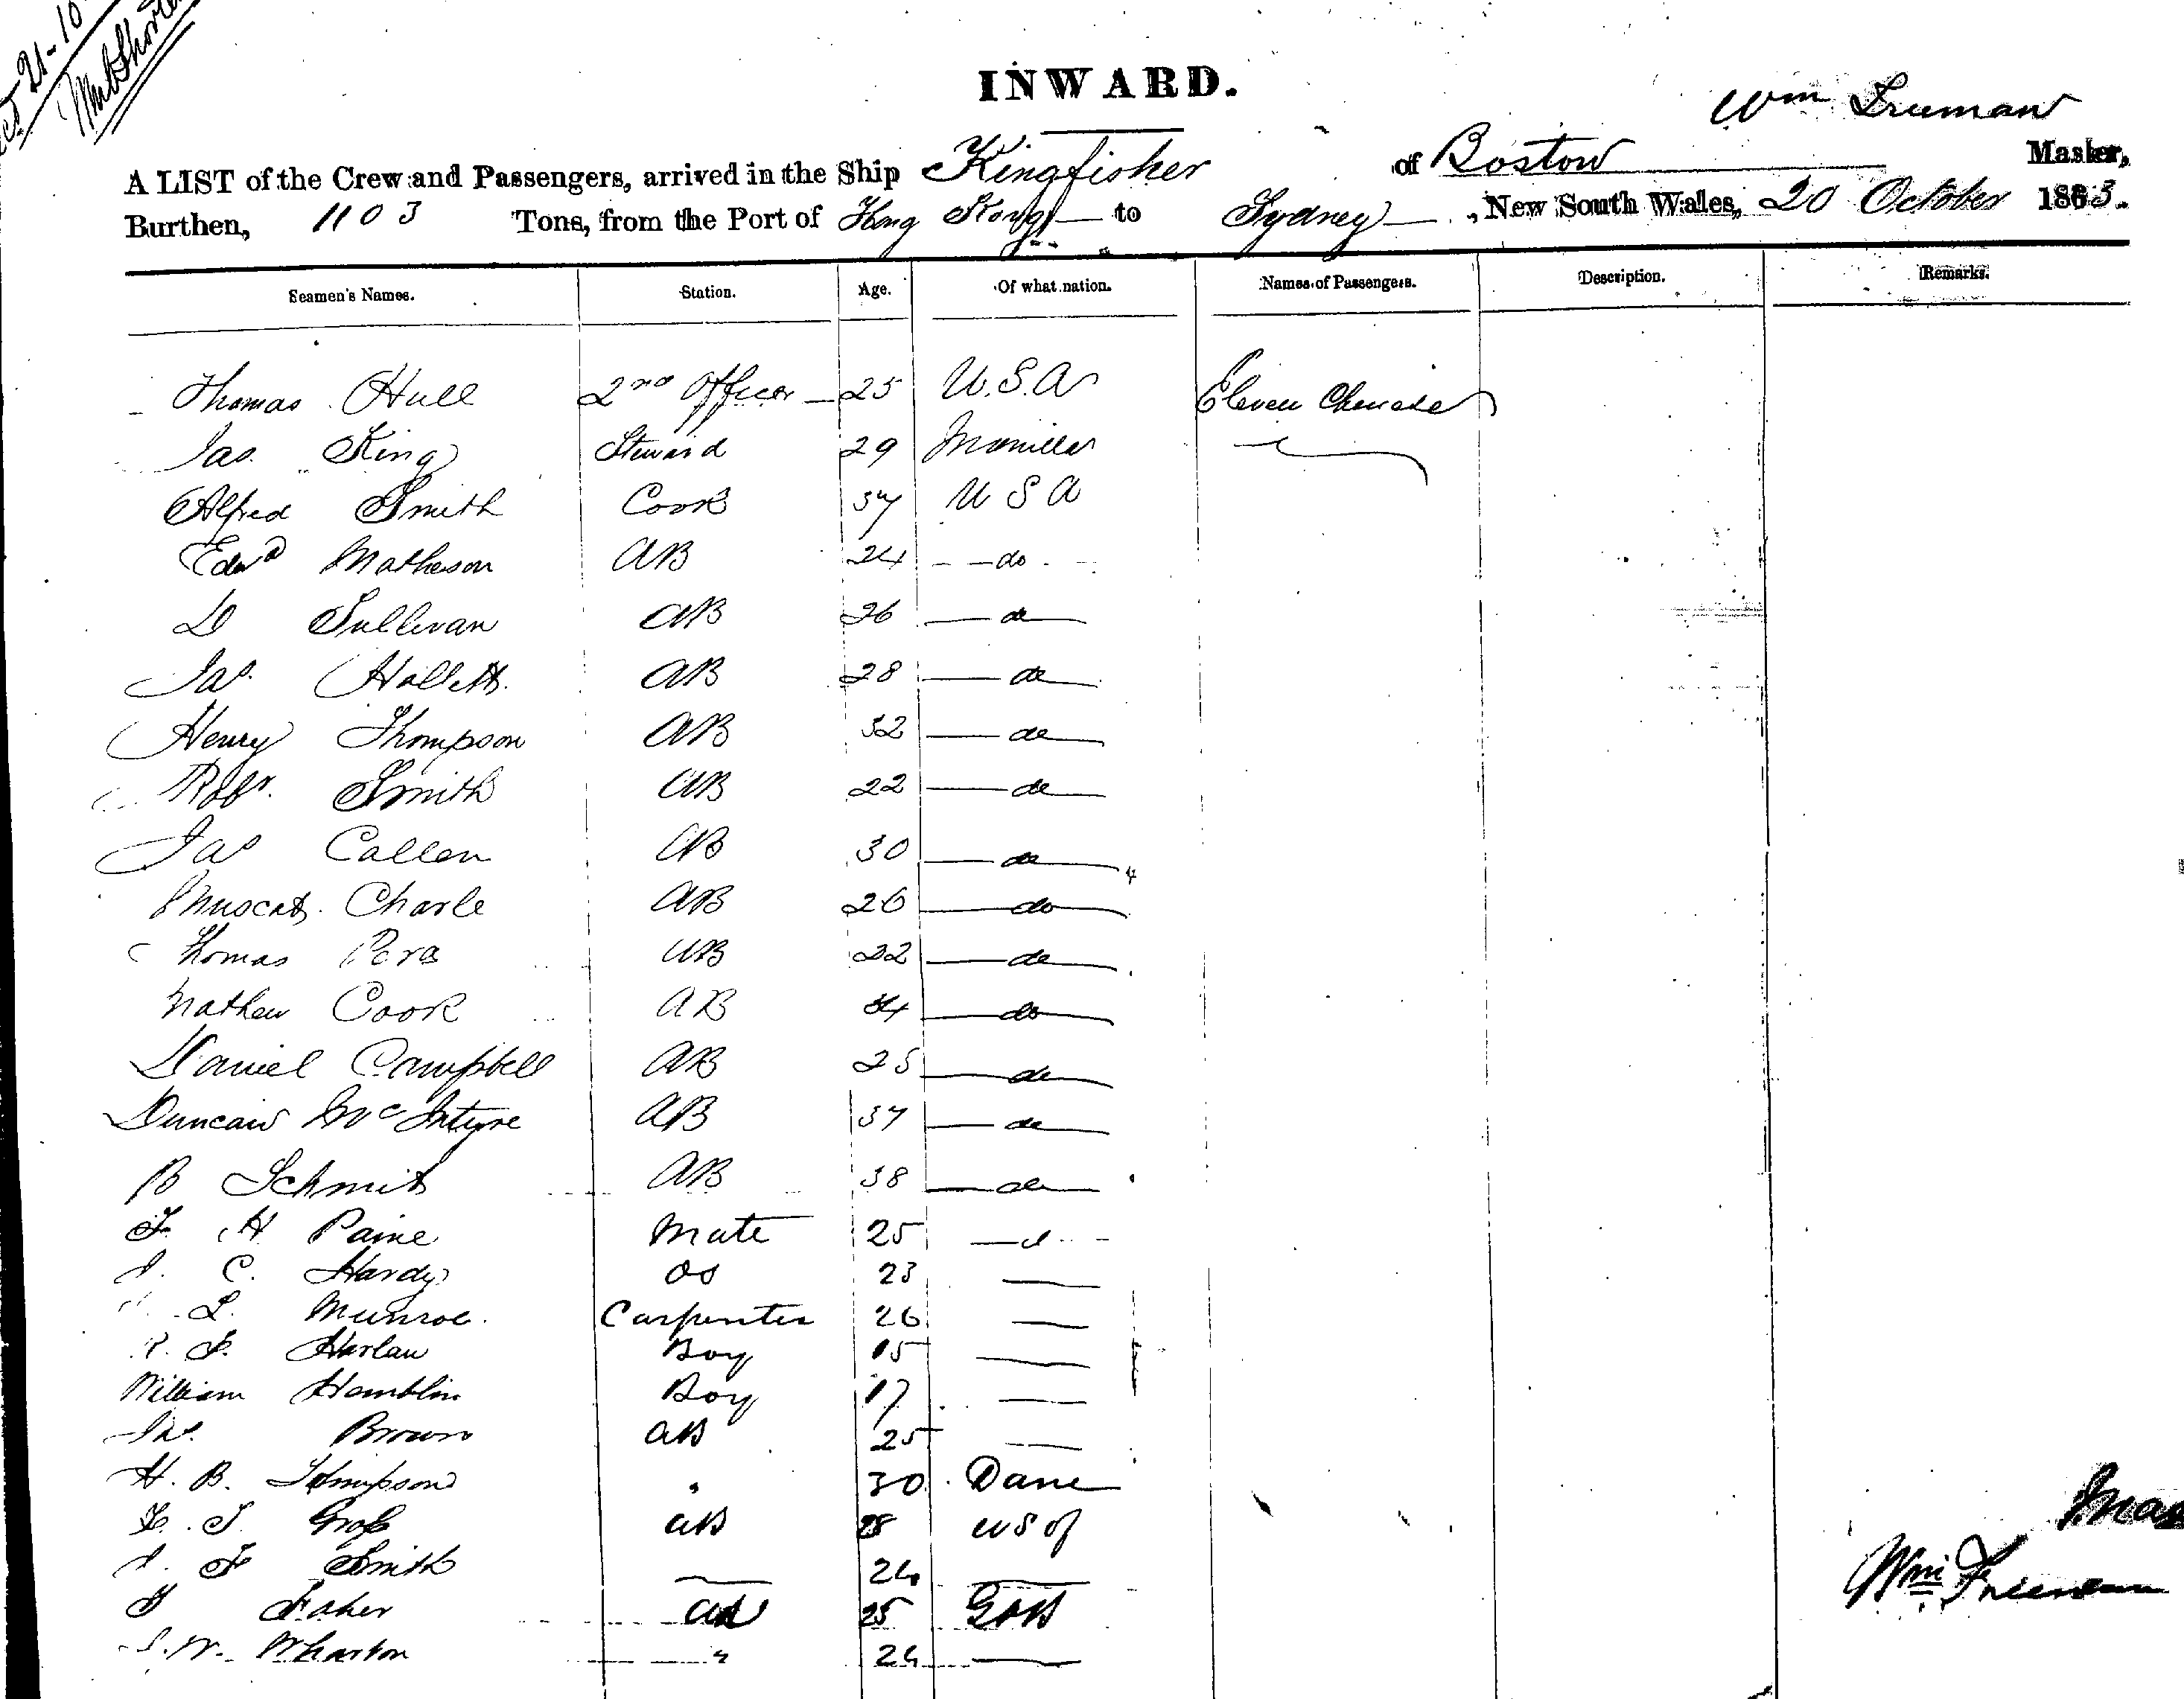 21-10
INWARD.
Wm Freeman
A LIST of the Crew and Passengers, arrived in the Ship Kingfisher of Boston Master,
Burthen, 1103 Tons, from the Port of Hong Kong to Sydney, New South Wales, 20 October 1863.
Seamen's Names. Station. Age. Of what nation. Names of Passengers. Description. Remarks.
Thomas Hull 2nd Officer 25 U.S.A Eleven Chinese
Jas. King Steward 29 Manilla
Alfred Smith Cook 37 U S A
Edwd Matheson AB 24 do
D Sullivan AB 26 do
Jas. Hallett AB 28 do
Henry Thompson AB 32 do
Robt. Smith AB 22 do
Jas Callen AB 30 do
Muscat Charle AB 26 do
Thomas Pera AB 22 do
Mathew Cook AB do
Daniel Campbell AB 25 do
Duncan McIntyre AB 37 do
B Schmit AB 38 do
F. H Paine Mate 25 d
C. Hardy OS 23
L. Munroe. Carpenter 26
F. Harlan Boy 15
William Hamblin Boy 17
Jas. Brown AB 25
H. B. Thimpson " 30 Dane
T. Gross AB 28 US of
F Smith 24
Faher AB 25 GBB
W. Wharton " 24
Mas
Wm Freeman